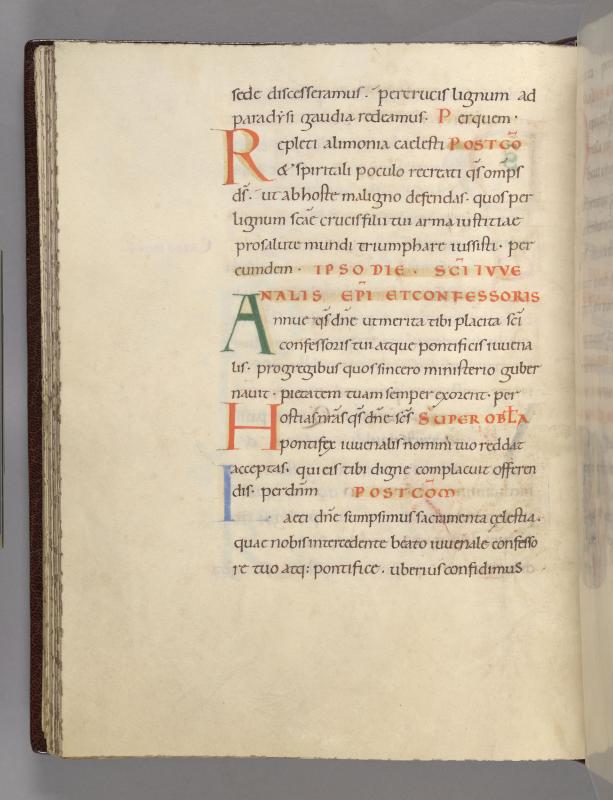 sede discesseramus. per crucis lignum ad
paradysi gaudia redeamus. Per quem.
Repleti alimonia caelesti POSTCŌ
& spiritali poculo recreati qs̄ omp̄s
ds̄. ut ab hoste maligno defendas. quos per
lignum scāe crucis filii tui arma iustitiae
pro salute mundi triumphare iussisti. per
eumdem. IPSO DIE. SCĪ IVVE
NALIS EPĪ ET CONFESSORIS
Annue qs̄ dn̄e ut merita tibi placita scī
confessoris tui atque pontificis iuuena
lis. pro gregibus quos sincero ministerio guber
nauit. pietatem tuam semper exorent. per
Hostias nr̄as qs̄ dn̄e scs̄ SUPER OBLA
pontifex iuuenalis nomini tuo reddat
acceptas. qui eis tibi digne complacuit offeren
dis. per dn̄m POSTCOM̄
Laeti dn̄e sumpsimus sacramenta cęlestia.
quae nobis intercedente beato iuuenale confesso
re tuo atq: pontifice. uberius confidimus